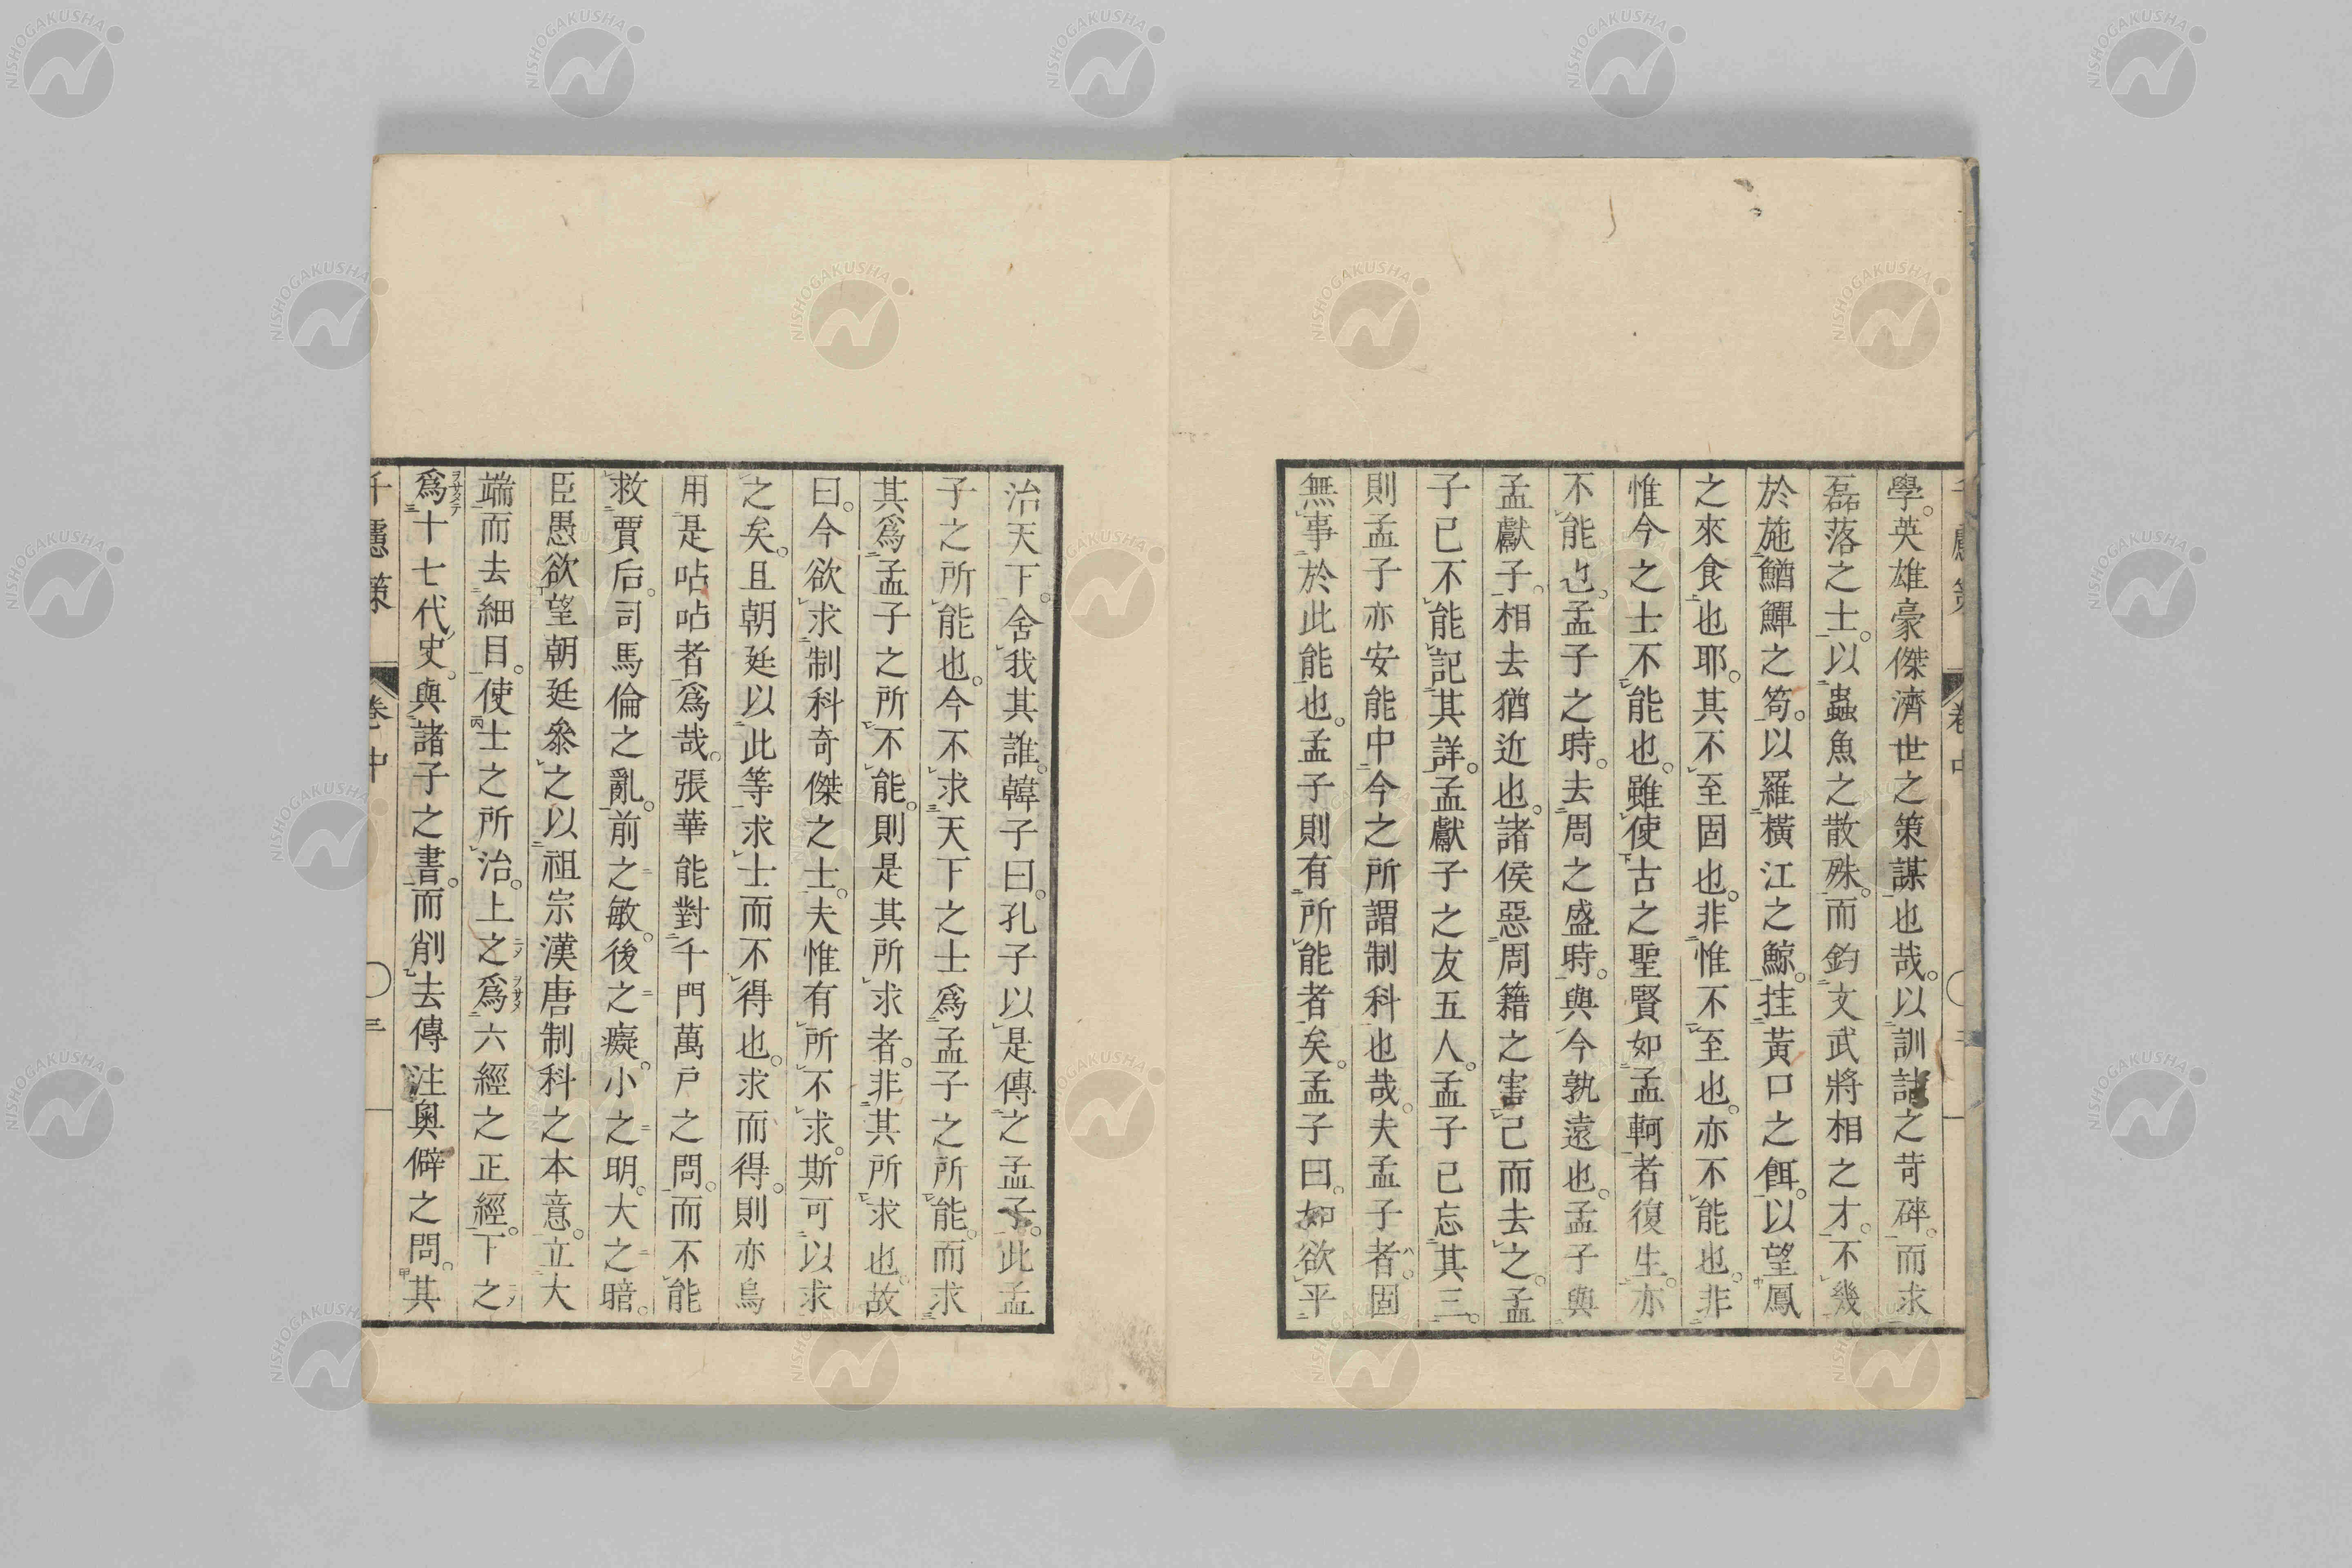 學。英雄豪傑濟世之策謀也哉。以訓詁之苛碎。而求
磊落之士。以蟲魚之散殊。而鈞文武將相之才。不幾
於施鰌鱓之笱。以羅橫江之鯨。挂黃口之餌。以望鳳
之來食也耶。其不至固也。非惟不至也。亦不能也。非
惟今之士不能也。雖使古之聖賢如孟軻者復生。亦
不能也。孟子之時。去周之盛時。與今孰遠也。孟子與
孟獻子。相去猶近也。諸侯惡周籍之害己而去之。孟
子已不能記其詳。孟獻子之友五人。孟子已忘其三。
則孟子亦安能中今之所謂制科也哉。夫孟子者。固
無事於此能也。孟子則有所能者矣。孟子曰。如欲平
治天下。舍我其誰。韓子曰。孔子以是傳之孟子。此孟
子之所能也。今不求天下之士爲孟子之所能。而求
其爲孟子之所不能。則是其所求者。非其所求也。故
曰。今欲求制科奇傑之士。夫惟有所不求。斯可以求
之矣。且朝廷以此等求士而不得也。求而得。則亦烏
用是呫呫者爲哉。張華能對千門萬戶之問。而不能
救賈后。司馬倫之亂。前之敏。後之癡。小之明。大之暗。
臣愚欲望朝廷叅之以祖宗漢唐制科之本意。立大
端而去細目。使士之所治。上之爲六經之正經。下之
爲十七代史。與諸子之書。而削去傳注奧僻之問。其
千慮策 卷中 〇 三
NISHOGAKUSHA